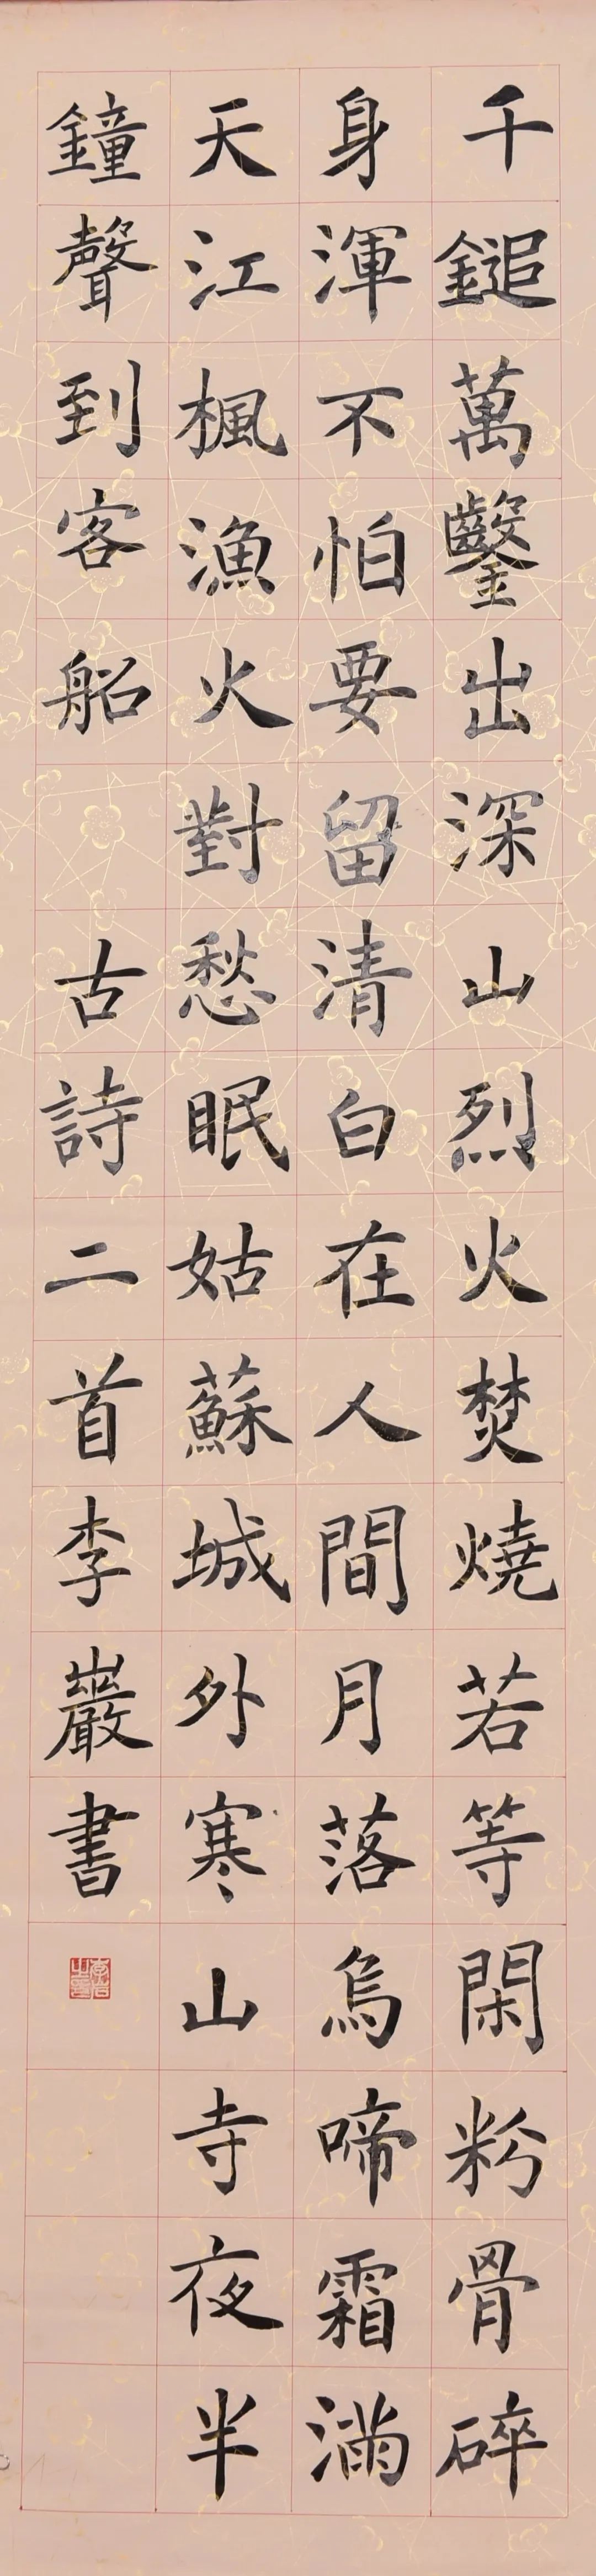 千鎚萬鑿出深山烈火焚燒若等閑粉骨碎
身渾不怕要留清白在人間月落烏啼霜滿
天江楓漁火對愁眠姑蘇城外寒山寺夜半
鐘聲到客船 古詩二首李巖書